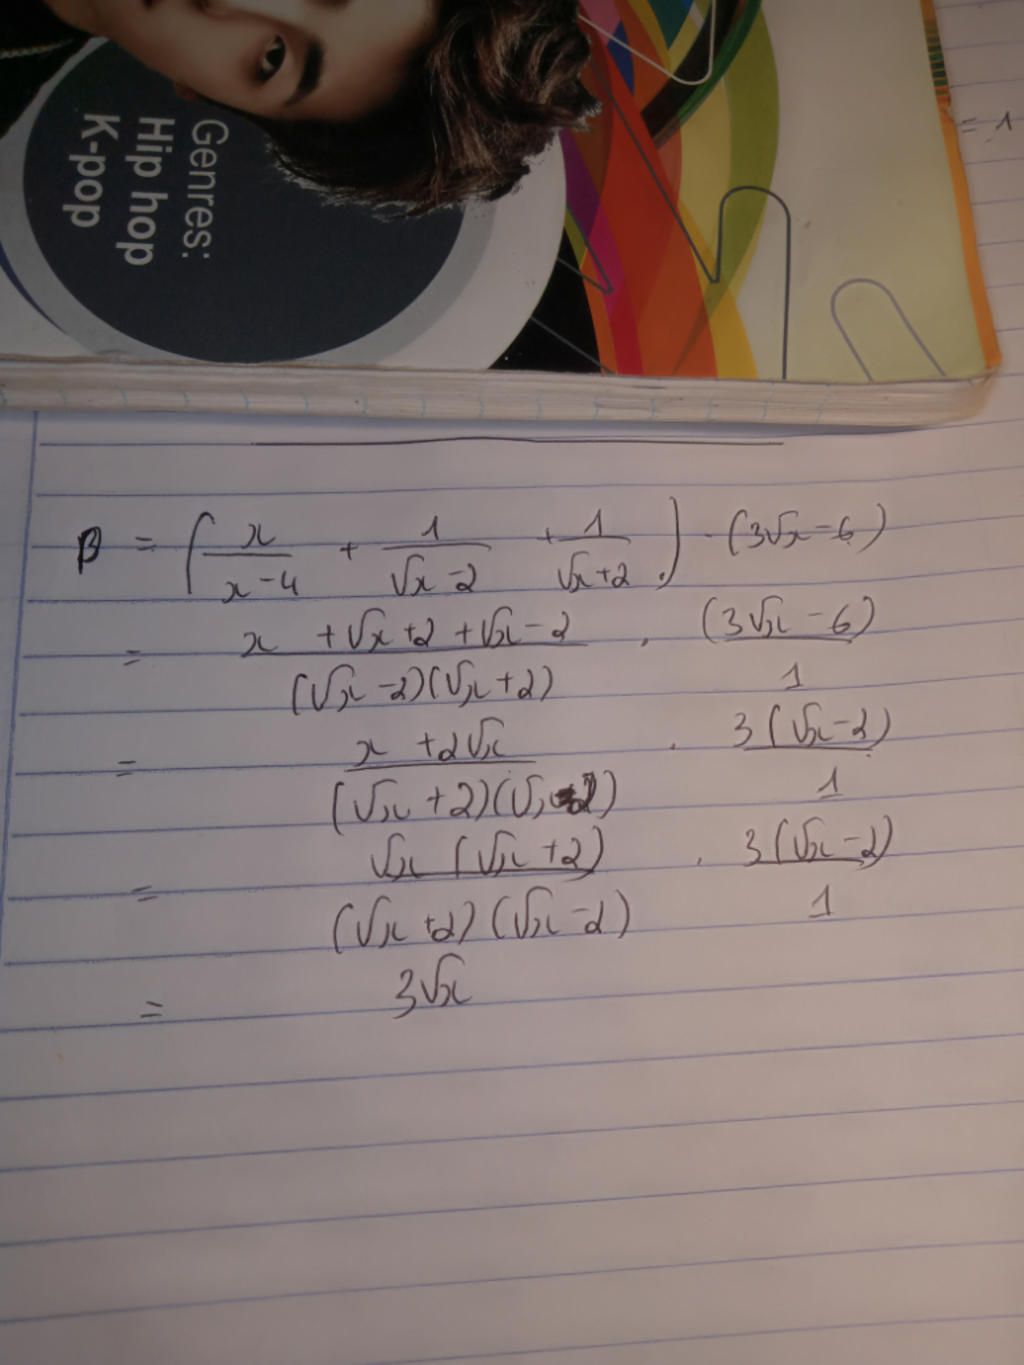 Genres:
Hip hop
K-pop
= 1
B = (x/(x-4) + 1/(√x-2) + 1/(√x+2)) · (3√x-6)
= (x+√x+2+√x-2)/((√x-2)(√x+2)) · (3√x-6)/1
= (x+2√x)/((√x+2)(√x-2)) · 3(√x-2)/1
= √x(√x+2)/((√x+2)(√x-2)) · 3(√x-2)/1
= 3√x